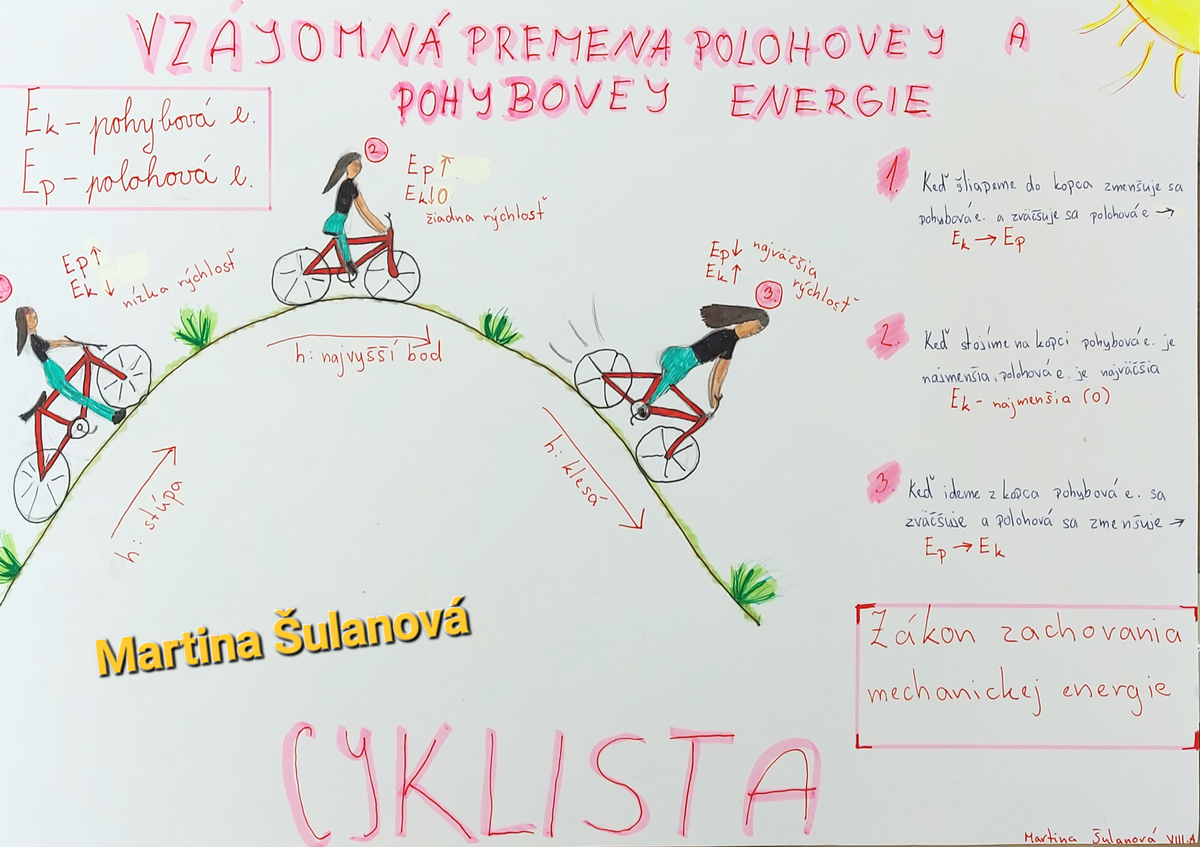 VZÁJOMNÁ PREMENA POLOHOVEJ A
POHYBOVEJ ENERGIE
Ek - pohybová e.
Ep - polohová e.
Ep ↑
Ek ↓
nízka rýchlosť
2.
Ep ↑
Ek ↓ 0
žiadna rýchlosť
Ep ↓ najväčšia
Ek ↑ rýchlosť
3.
h: stúpa
h: najvyšší bod
h: klesá
1. Keď šliapeme do kopca zmenšuje sa
pohybová e. a zväčšuje sa polohová e →
Ek → Ep
2. Keď stojíme na kopci pohybová e. je
najmenšia, polohová e. je najväčšia
Ek - najmenšia (0)
3. Keď ideme z kopca pohybová e. sa
zväčšuje a polohová sa zmenšuje →
Ep → Ek
Zákon zachovania
mechanickej energie
Martina Šulanová
CYKLISTA
Martina Šulanová VIII.A